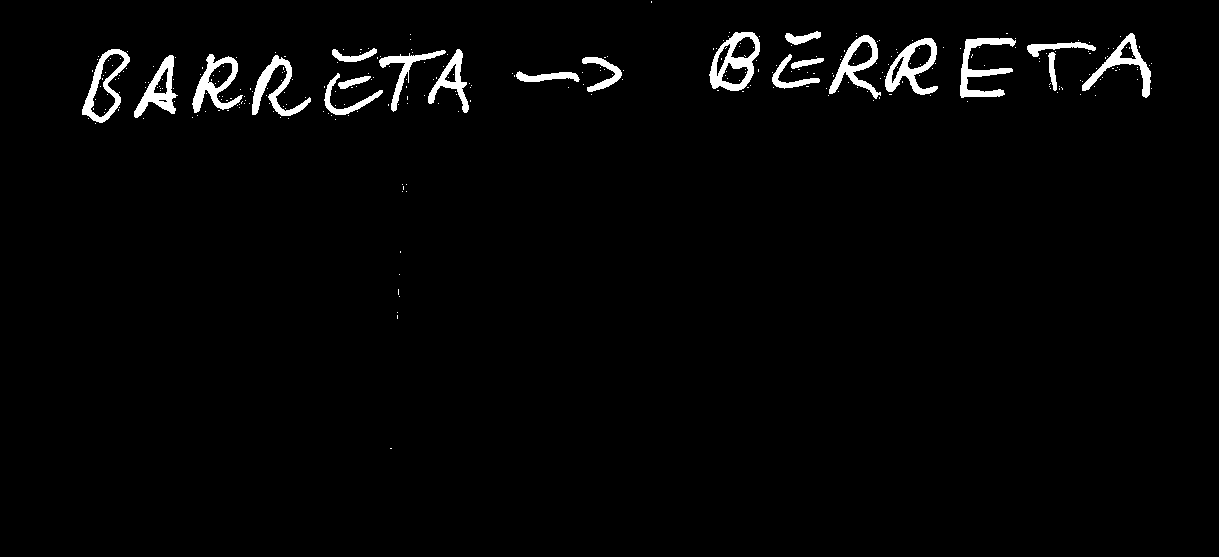 BARRĔTA → BĔRRETA